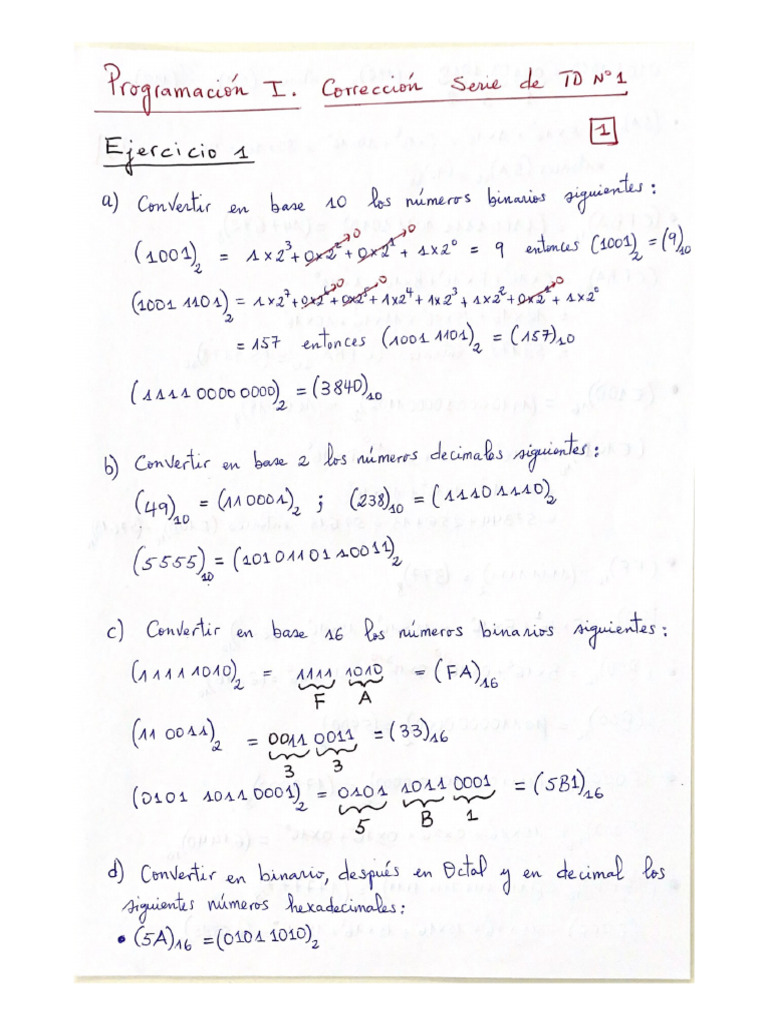 Programación I. Corrección Serie de TD N°1
1
Ejercicio 1
a) Convertir en base 10 los números binarios siguientes:
(1001)₂ = 1×2³+0×2²+0×2¹+1×2⁰ = 9 entonces (1001)₂=(9)₁₀
0 0
(1001 1101)₂ = 1×2⁷+0×2⁶+0×2⁵+1×2⁴+1×2³+1×2²+0×2¹+1×2⁰
0 0 0
= 157 entonces (1001 1101)₂ = (157)₁₀
(1111 0000 0000)₂ = (3840)₁₀
b) Convertir en base 2 los números decimales siguientes:
(49)₁₀ = (110001)₂ ; (238)₁₀ = (11101110)₂
(5555)₁₀ = (1010110110011)₂
c) Convertir en base 16 los números binarios siguientes:
(1111 1010)₂ = 1111 1010 = (FA)₁₆
F A
(11 0011)₂ = 0011 0011 = (33)₁₆
3 3
(0101 1011 0001)₂ = 0101 1011 0001 = (5B1)₁₆
5 B 1
d) Convertir en binario, después en Octal y en decimal los
siguientes números hexadecimales:
• (5A)₁₆ = (0101 1010)₂